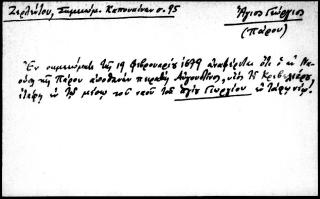 Ζερλέντου, Σημειώμ. Καπουκίνων σ. 95
Ἅγιος Γεώργιος
(Πάρου)
Ἐν σημειώματι τῆς 19 Φεβρουαρίου 1679 ἀναφέρεται ὅτι ὁ ἐν
τῆς Πάρου ἀποθανὼν πειρατὴς Αὐγουστῖνος, υἱὸς τοῦ
ἐτάφη ἐν τῷ μέσῳ τοῦ ναοῦ τοῦ ἁγίου Γεωργίου ἐν